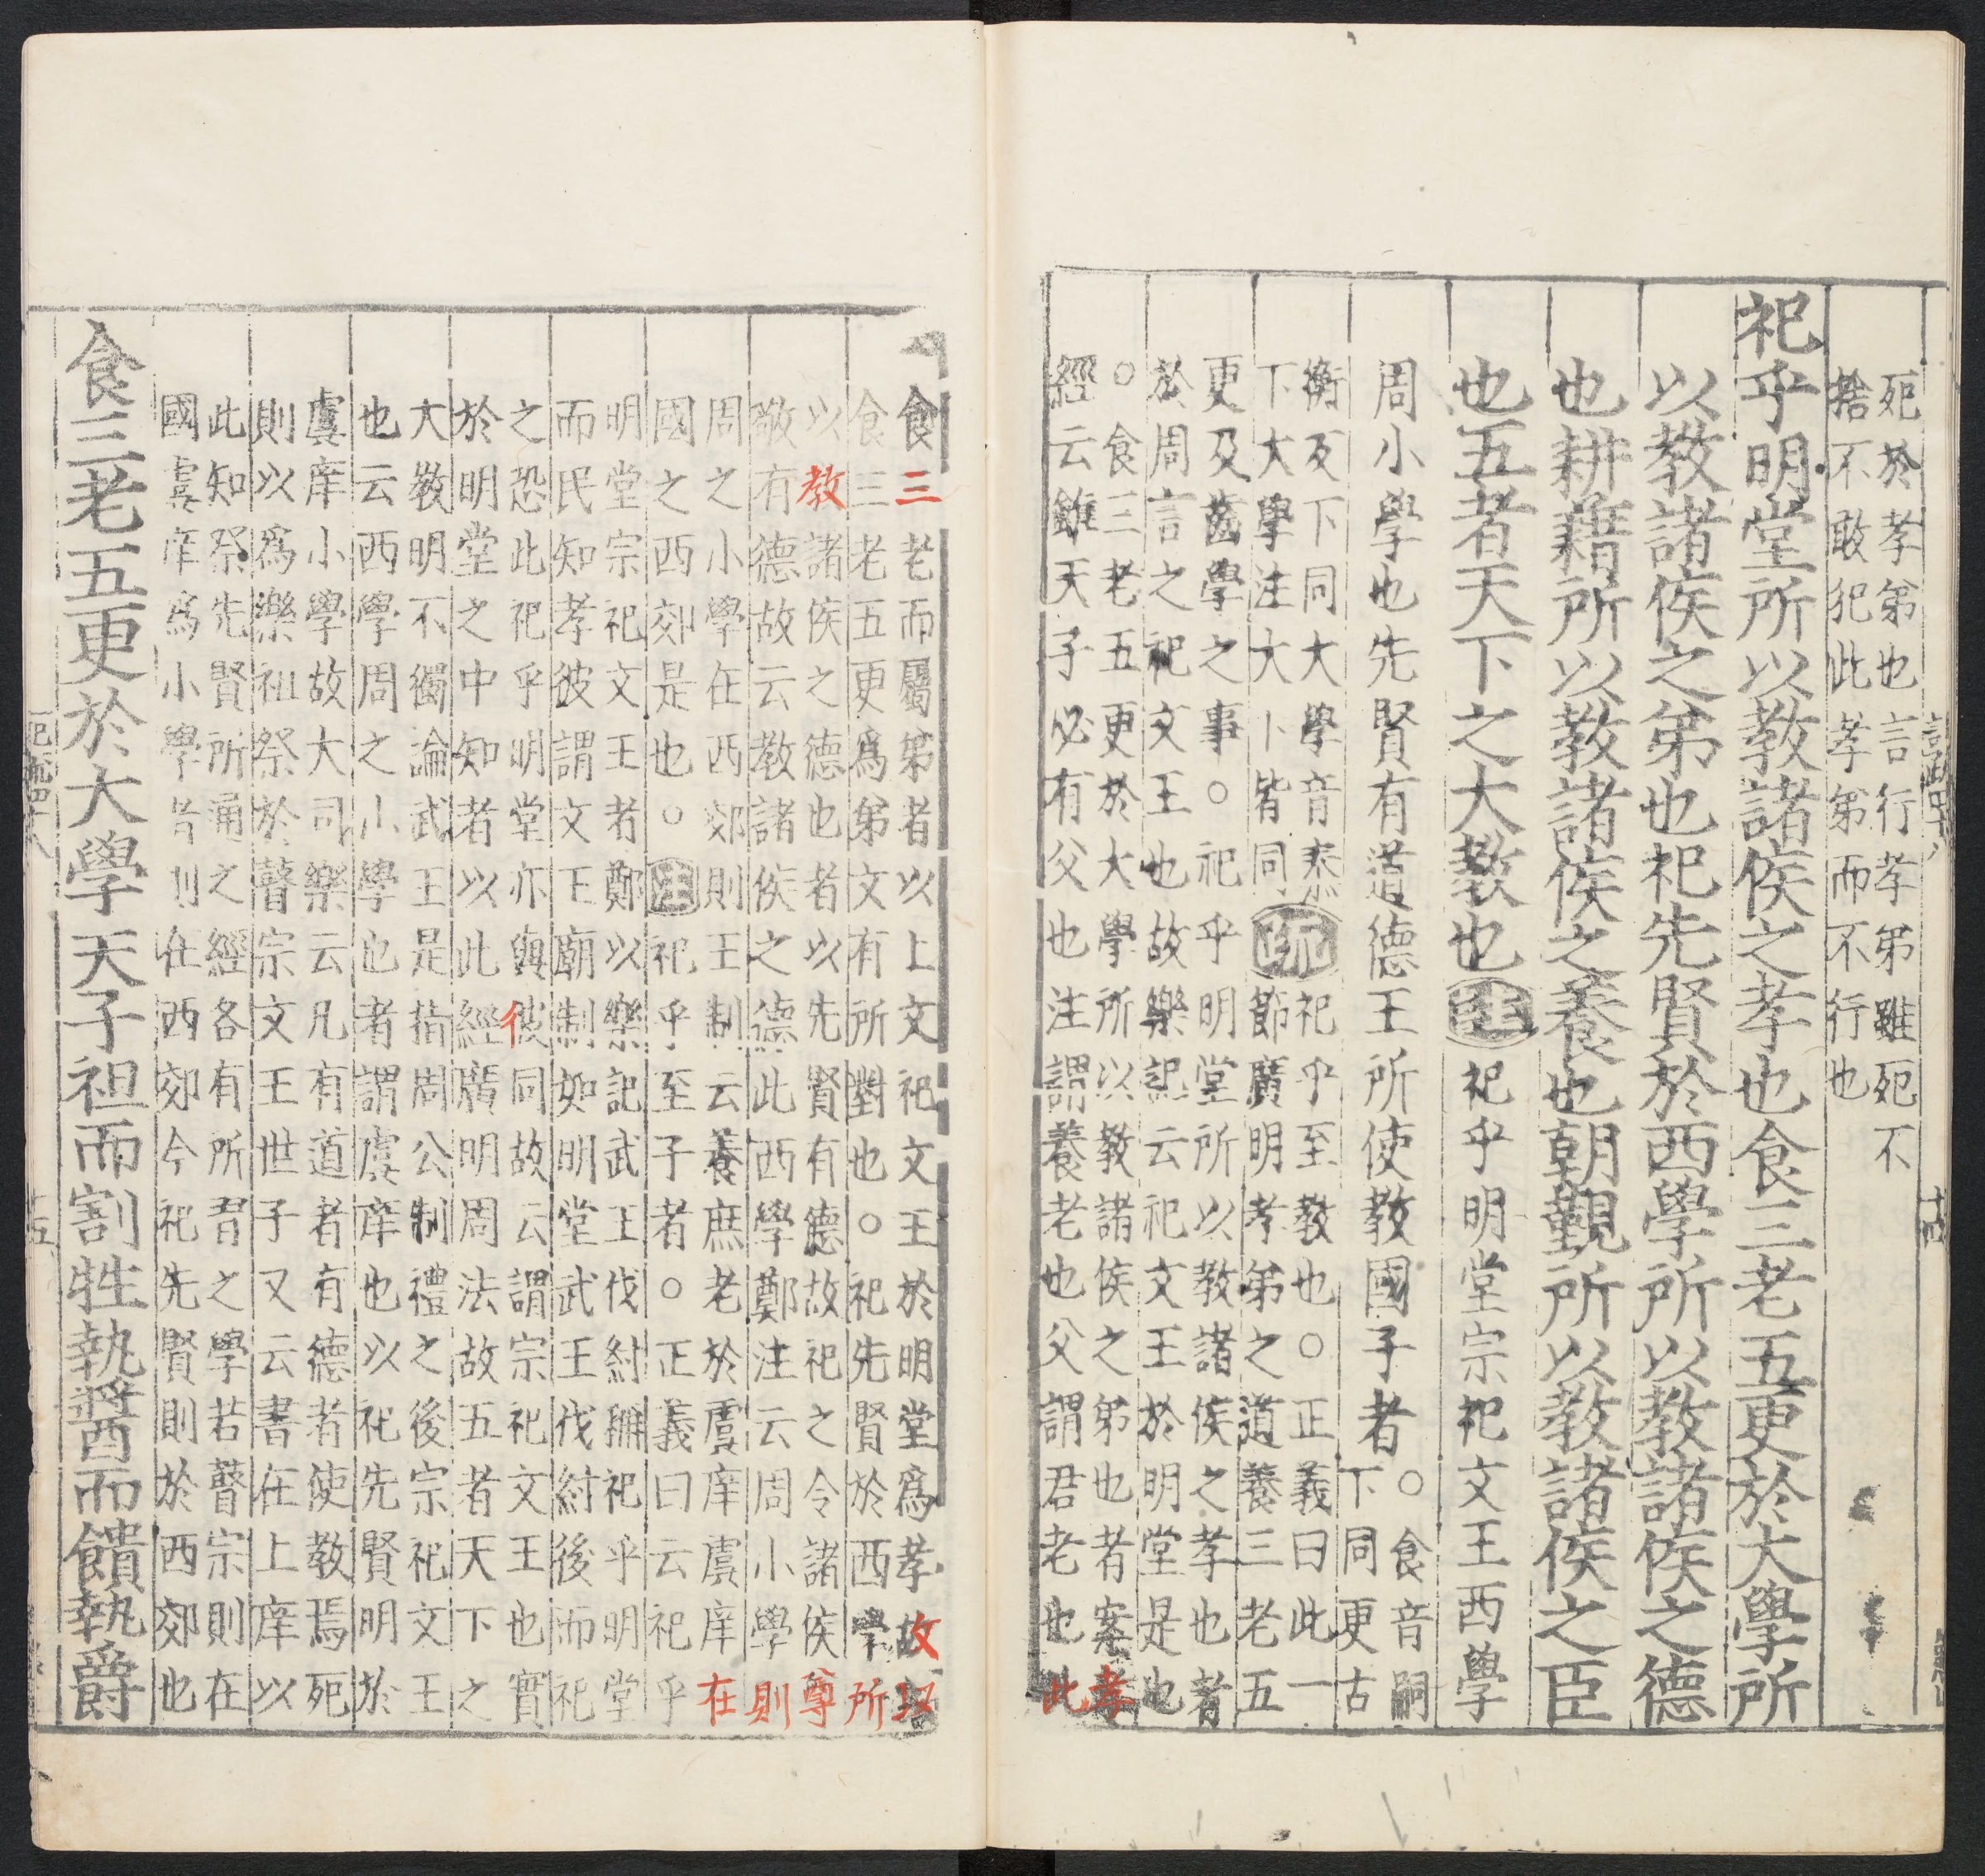 死於孝弟也言行孝弟雖死不
捨不敢犯此孝弟而不行也
祀乎明堂所以教諸侯之孝也食三老五更於大學所
以教諸侯之弟也祀先賢於西學所以教諸侯之德
也耕藉所以教諸侯之養也朝覲所以教諸侯之臣
也五者天下之大教也注祀乎明堂宗祀文王西學
周小學也先賢有道德王所使教國子者
○食音嗣
下同更古
衡反下同大學音泰
下大學注大卜皆同
疏
祀乎至教也○正義曰此一
節廣明孝弟之道養三老五
更及齒學之事○祀乎明堂所以教諸侯之孝也者
於周言之祀文王也故樂記云祀文王於明堂是也
○食三老五更於大學所以教諸侯之弟也者案孝
經云雖天子必有父也注謂養老也父謂君老也此
食三老而屬弟者以上文祀文王於明堂爲孝故以
食三老五更爲弟文有所對也○祀先賢於西學所
以教諸侯之德也者以先賢有德故祀之令諸侯尊
敬有德故云教諸侯之德此西學鄭注云周小學則
周之小學在西郊則王制云養庶老於虞庠虞庠在
國之西郊是也○注祀乎至子者○正義曰云祀乎
明堂宗祀文王者鄭以樂記武王伐紂稱祀乎明堂
而民知孝彼謂文王廟制如明堂武王伐紂後而祀
之恐此祀乎明堂亦與彼同故云謂宗祀文王也實
於明堂之中知者以此經廣明周法故五者天下之
大教明不獨論武王是指周公制禮之後宗祀文王
也云西學周之小學也者謂虞庠也以祀先賢明於
虞庠小學故大司樂云凡有道者有德者使教焉死
則以爲樂祖祭於瞽宗文王世子又云書在上庠以
此知祭先賢所通之經各有所習之學若瞽宗則在
國虞庠爲小學者則在西郊今祀先賢則於西郊也
食三老五更於大學天子袒而割牲執醬而饋執爵